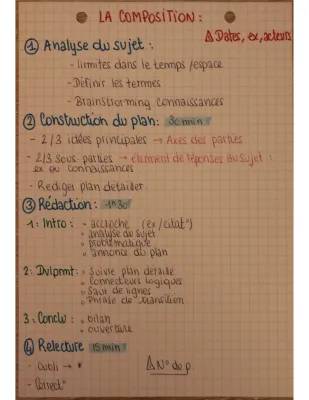 LA COMPOSITION :
⚠ Dates, ex, acteurs
① Analyse du sujet :
- limites dans le temps /espace
- Définir les termes
- Brainstorming connaissances
② Construction du plan : 30 min
- 2/3 idées principales → Axes des parties
- 2/3 sous parties → élément de réponses au sujet :
ex ou connaissances
- Rediger plan detailler
③ Rédaction : 1h30
1 : Intro : - accroche (ex/citat°)
• analyse du sujet
• problématique
• annonce du plan
2 : Dvlpmt : • Suivre plan détaillé
• Connecteurs logiques
• Saut de lignes
• Phrase de transition
3 : Conclu : • bilan
• ouverture
④ Relecture 15 min
- Oubli → *
- Correct°
⚠ N° de p.